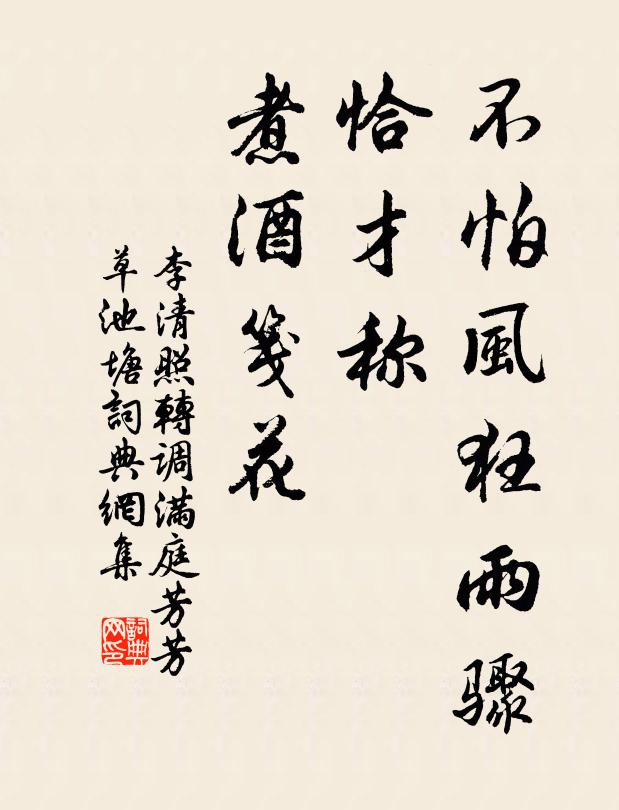 不怕風狂雨骤
恰才称
煮酒笺花
李清照轉调滿庭芳芳
草池塘詞典網集
詞典
网印